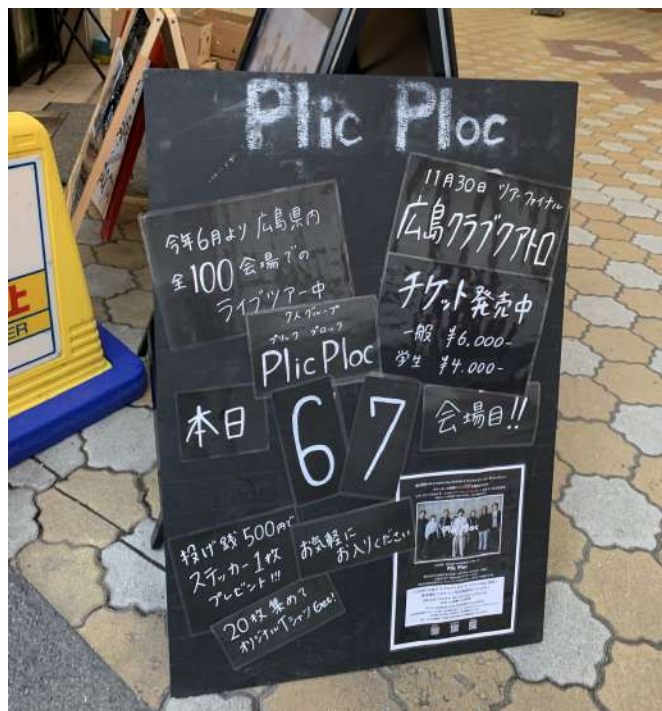 Plic Ploc
今年6月より広島県内
全100会場での
ライブツアー中
11月30日 ツアーファイナル
広島クラブクアトロ
チケット発売中
一般 ¥6.000-
学生 ¥4.000-
7人グループ
プリック プロック
Plic Ploc
本日
67
会場目!!
投げ銭500円で
ステッカー1枚
プレゼント!!!
お気軽に
お入りください
20枚集めて
オリジナルTシャツGet!
Plic Ploc
Plic Ploc
止
ER